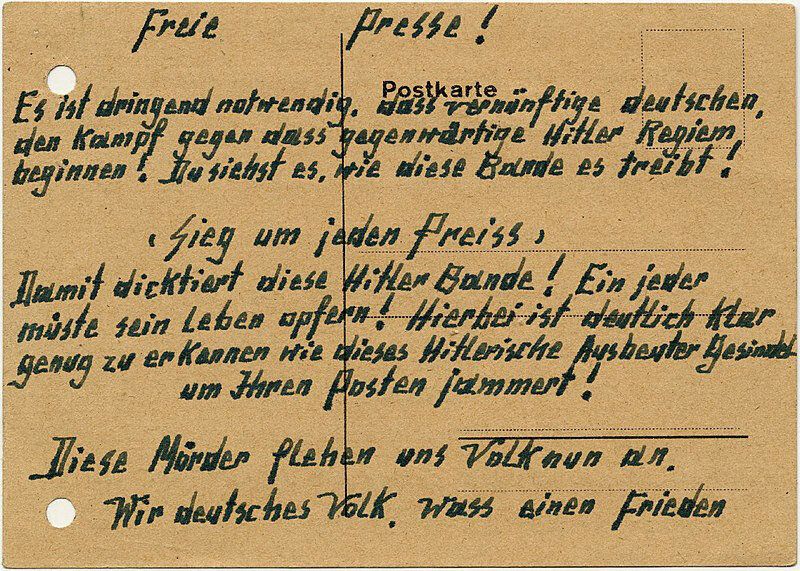 Freie Presse!
Postkarte
Es ist dringend notwendig, dass vernünftige deutschen,
den Kampf gegen dass gegenwärtige Hitler Regiem
beginnen! Du siehst es, wie diese Bande es treibt!
„Sieg um jeden Preiss„
Damit dicktiert diese Hitler Bande! Ein jeder
müste sein Leben opfern! Hierbei ist deutlich klar
genug zu erkennen wie dieses Hitlerische Ausbeuter Gesindel
um Ihren Posten jammert!
Diese Mörder flehen uns Volk nun an.
Wir deutsches Volk, wass einen Frieden